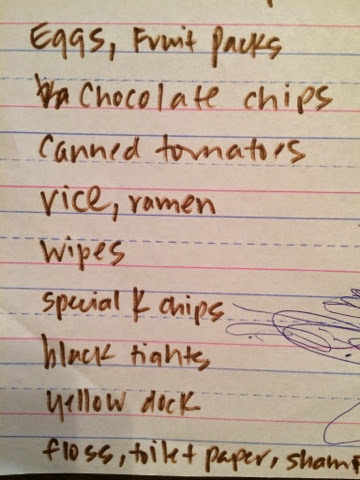 Eggs, Fruit packs
Chocolate chips
Canned tomatoes
rice, ramen
wipes
special k chips
black tights
yellow dock
floss, toilet paper, shamp